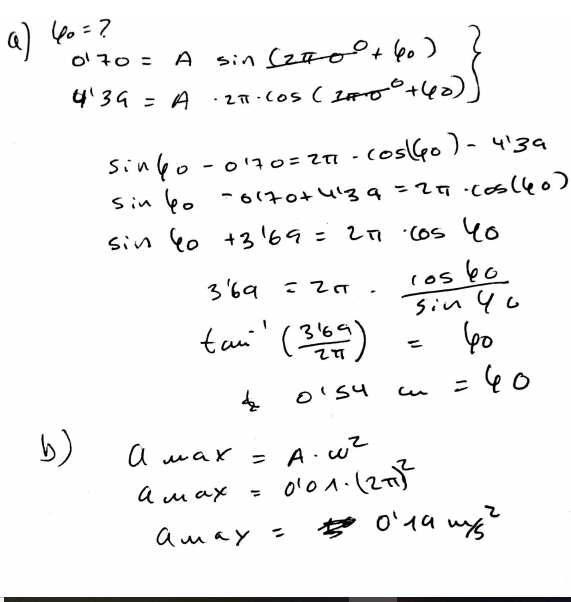 a) φ₀ = ?
0'70 = A sin (2π·0⁰ + φ₀)
4'39 = A · 2π · cos (2π·0⁰ + φ₀) }
sin φ₀ - 0'70 = 2π · cos(φ₀) - 4'39
sin φ₀ - 0'70 + 4'39 = 2π · cos(φ₀)
sin φ₀ + 3'69 = 2π · cos φ₀
3'69 = 2π · cos φ₀ / sin φ₀
tan⁻¹ (3'69 / 2π) = φ₀
0'54 = φ₀
b) a max = A · ω²
a max = 0'01 · (2π)²
a max = 0'19 m/s²